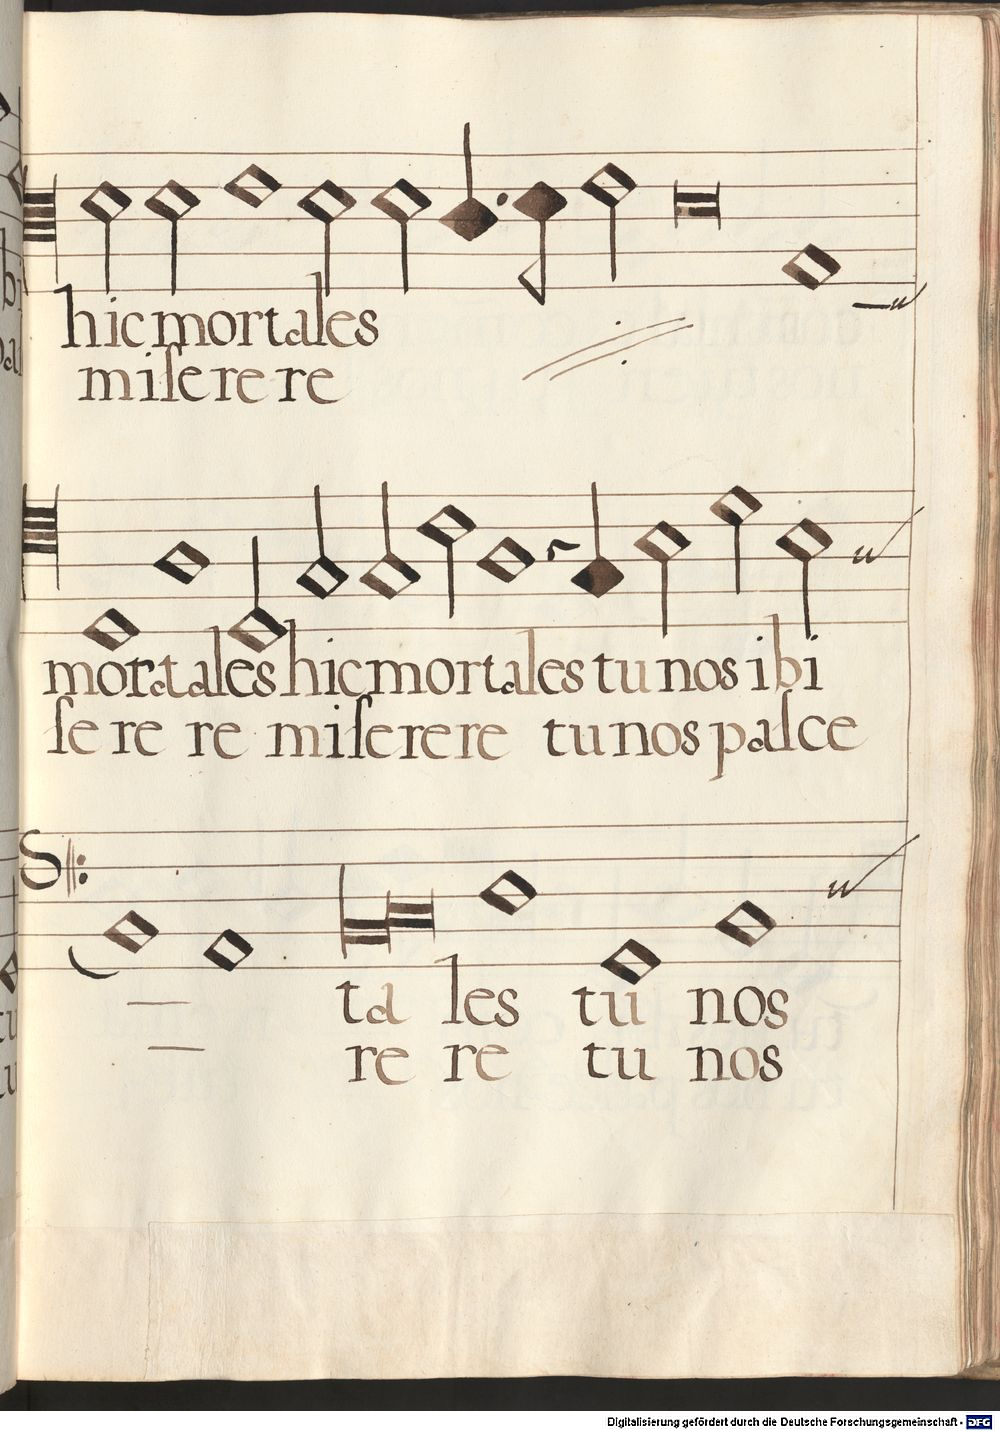 hic mortales
miſerere
mortales hic mortales tu nos ibi
ſe re re miſerere tu nos paſce
ta les tu nos
re re tu nos
Digitalisierung gefördert durch die Deutsche Forschungsgemeinschaft - DFG